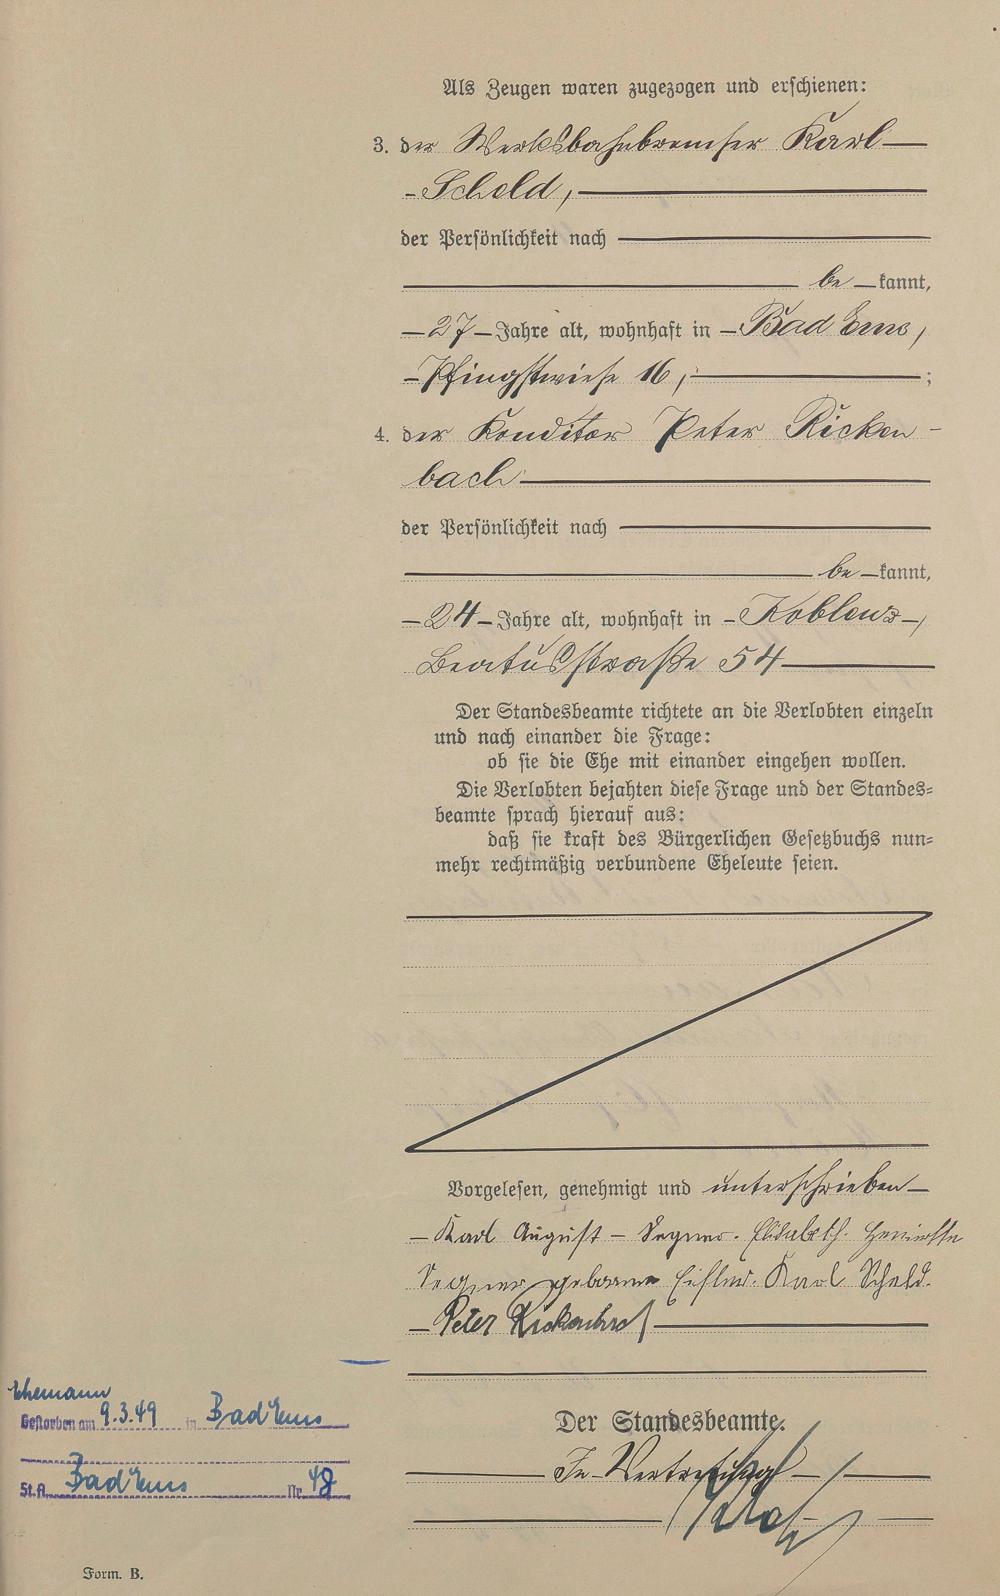 Als Zeugen waren zugezogen und erschienen:
3. der Werksbahnbremser Karl
Scheld,
der Persönlichkeit nach
be kannt,
27 Jahre alt, wohnhaft in Bad Ems,
Pfingstwiese 16, ;
4. der Konditor Peter Ricken-
bach
der Persönlichkeit nach
be kannt,
24 Jahre alt, wohnhaft in Koblenz,
Beatusstraße 54
Der Standesbeamte richtete an die Verlobten einzeln
und nach einander die Frage:
ob sie die Ehe mit einander eingehen wollen.
Die Verlobten bejahten diese Frage und der Standes=
beamte sprach hierauf aus:
daß sie kraft des Bürgerlichen Gesetzbuchs nun=
mehr rechtmäßig verbundene Eheleute seien.
Vorgelesen, genehmigt und unterschrieben
Karl August Elisabeth Henriette
geborene Karl Scheld.
Peter Rickenbach
Der Standesbeamte.
In Vertretung
Ehemann
Gestorben am 9.3.49 in Bad Ems
St.A. Bad Ems Nr. 48
Form. B.